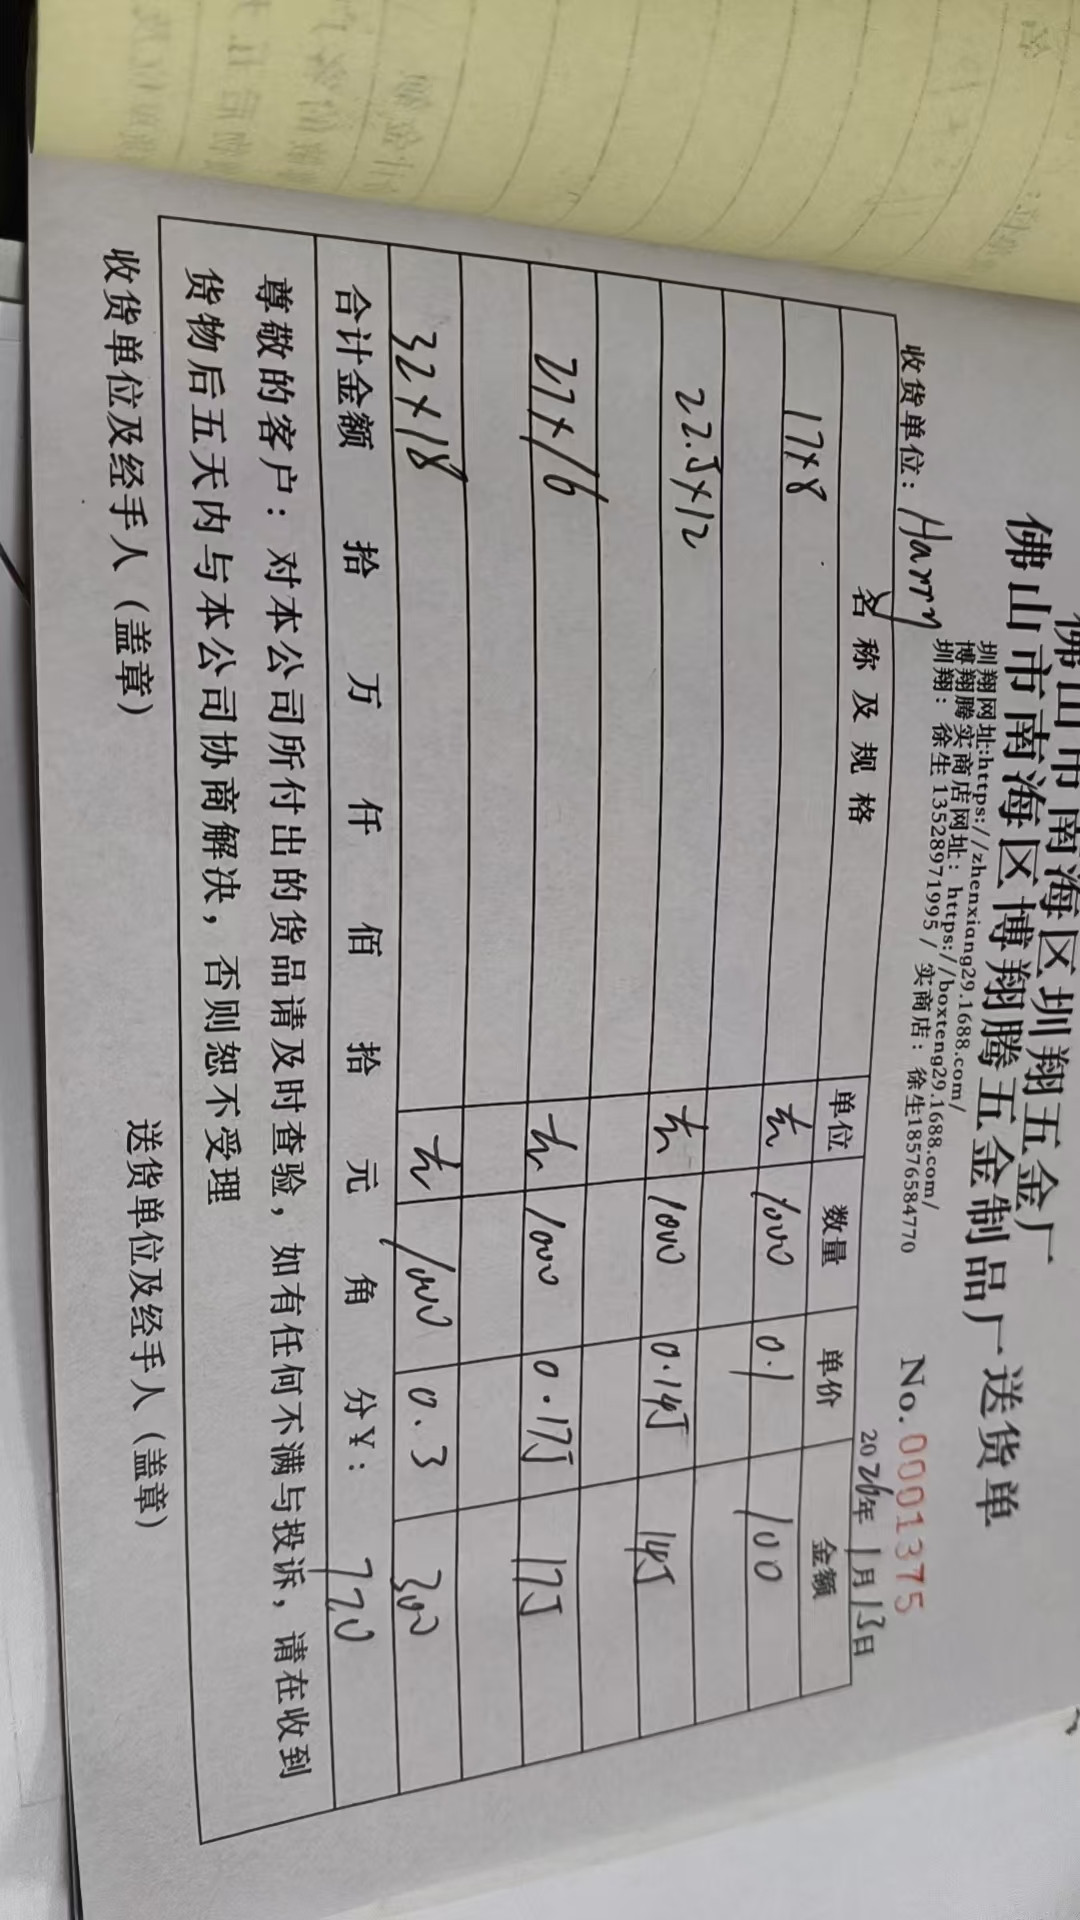 佛山市南海区圳翔五金厂
佛山市南海区博翔腾五金制品厂送货单
圳翔网址:https://zhenxiang29.1688.com/
博翔腾实商店网址：https://boxteng29.1688.com/
圳翔：徐生13528971995/ 实商店：徐生18576584770
No.0001375
收货单位：Harry
2026年1月13日
名称及规格 单位 数量 单价 金额
17×8 1000 0.1 100
22.5×12 1000 0.145 145
27×16 1000 0.175 175
32×18 1000 0.3 300
合计金额 拾 万 仟 佰 拾 元 角 分￥：720
尊敬的客户：对本公司所付出的货品请及时查验，如有任何不满与投诉，请在收到
货物后五天内与本公司协商解决，否则恕不受理
收货单位及经手人（盖章） 送货单位及经手人（盖章）